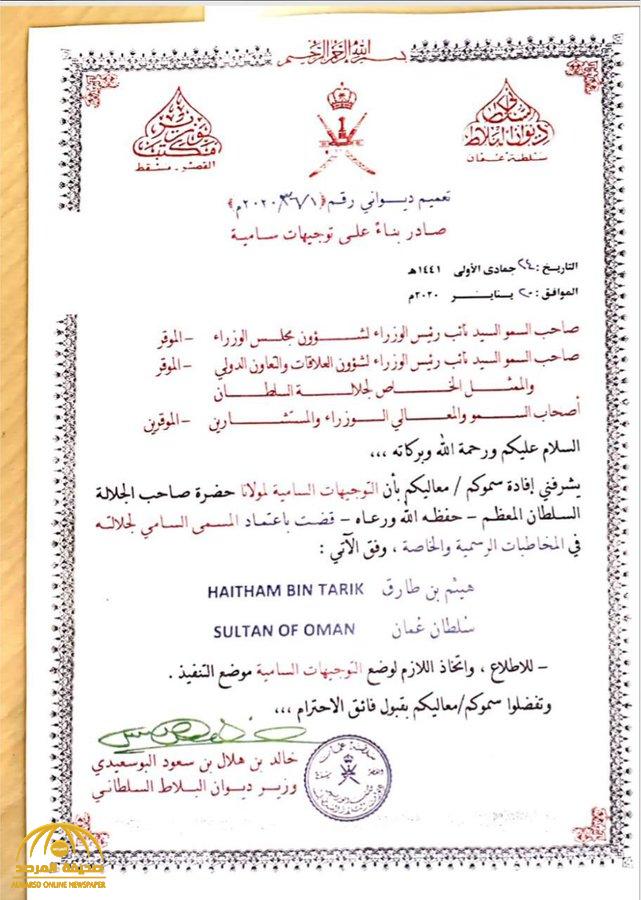 بسم الله الرحمن الرحيم
سلطنة عمان
ديوان البلاط السلطاني
مكتب الوزير
القصر - مسقط
تعميم ديواني رقم (٢٠٢٠/٣٦/١م)
صادر بناءً على توجيهات سامية
التاريخ : ٢٤ جمادى الأولى ١٤٤١هـ
الموافق : ٢٠ ينايـر ٢٠٢٠م
صاحب السمو السيد نائب رئيس الوزراء لشؤون مجلس الوزراء - الموقر
صاحب السمو السيد نائب رئيس الوزراء لشؤون العلاقات والتعاون الدولي - الموقر
والممثل الخاص لجلالة السلطان
أصحاب السمو والمعالي الوزراء والمستشارين - الموقرين
السلام عليكم ورحمة الله وبركاته ،،،
يشرفني إفادة سموكم / معاليكم بأن التوجيهات السامية لمولانا حضرة صاحب الجلالة
السلطان المعظم - حفظه الله ورعاه - قضت باعتماد المسمى السامي لجلالته
في المخاطبات الرسمية والخاصة ، وفق الآتي :
هيثم بن طارق HAITHAM BIN TARIK
سُلطان عُمان SULTAN OF OMAN
- للاطلاع ، واتخاذ اللازم لوضع التوجيهات السامية موضع التنفيذ .
وتفضلوا سموكم/معاليكم بقبول فائق الاحترام ،،،
خالد بن هلال بن سعود البوسعيدي
وزير ديوان البلاط السلطاني
صحيفة المرصد
ALMARSD ONLINE NEWSPAPER